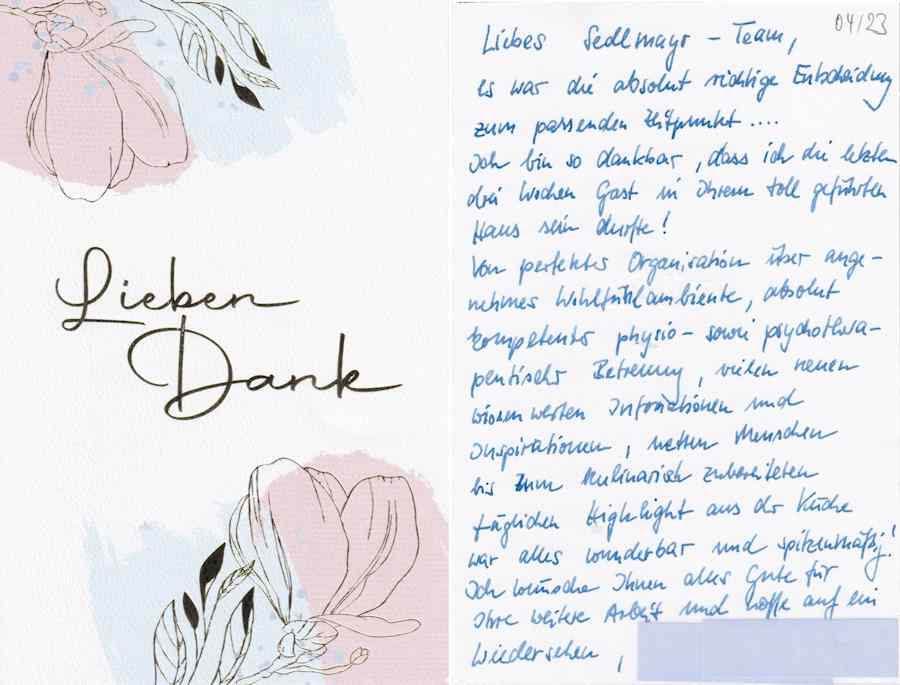 Lieben
Dank
04/23
Liebes Sedlmayr - Team,
es war die absolut richtige Entscheidung
zum passenden Zeitpunkt ....
Ich bin so dankbar, dass ich die letzten
drei Wochen Gast in Ihrem toll geführten
Haus sein durfte!
Von perfekter Organisation über ange-
nehmes Wohlfühlambiente, absolut
kompetente physio- sowie psychothera-
peutische Betreuung, vielen neuen
wissenswerten Informationen und
Inspirationen, netten Menschen
bis zum kulinarisch zubereiteten
täglichen Highlight aus der Küche
war alles wunderbar und spitzenmäßig!
Ich wünsche Ihnen alles Gute für
Ihre weitere Arbeit und hoffe auf ein
Wiedersehen,